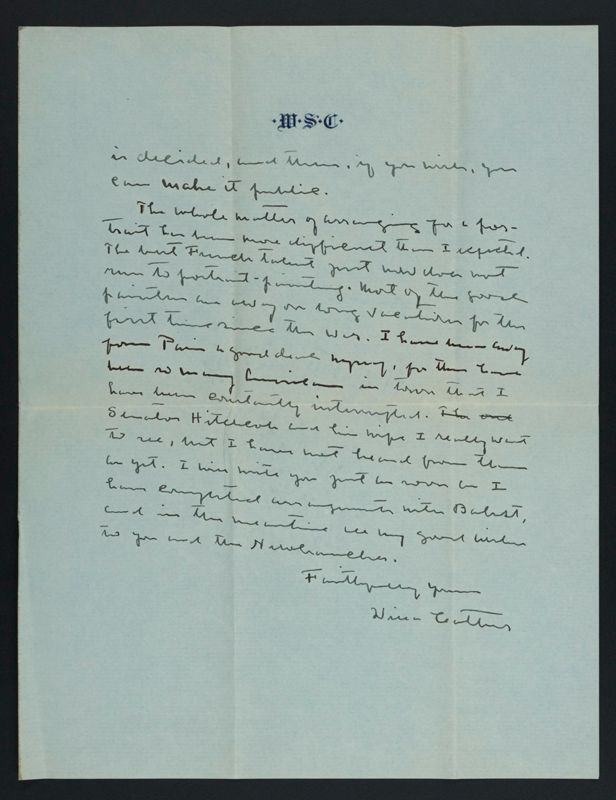 ·W·S·C·
is decided, and then, if you wish, you
can make it public.
The whole matter of arranging for a por-
trait has been more difficult than I expected.
The best French talent just now does not
run to portrait-painting. Most of the good
painters are away on long vacations for the
first time since the war. I have been away
from Paris a good deal myself, for there have
been so many Americans in town that I
have been constantly interrupted. The
Senator Hitchcock and his wife I really want
to see, but I have not heard from them
as yet. I will write you just as soon as I
have completed arrangements with Bakst,
and in the meantime all my good wishes
to you and the Newbranches.
Faithfully yours
Willa Cather